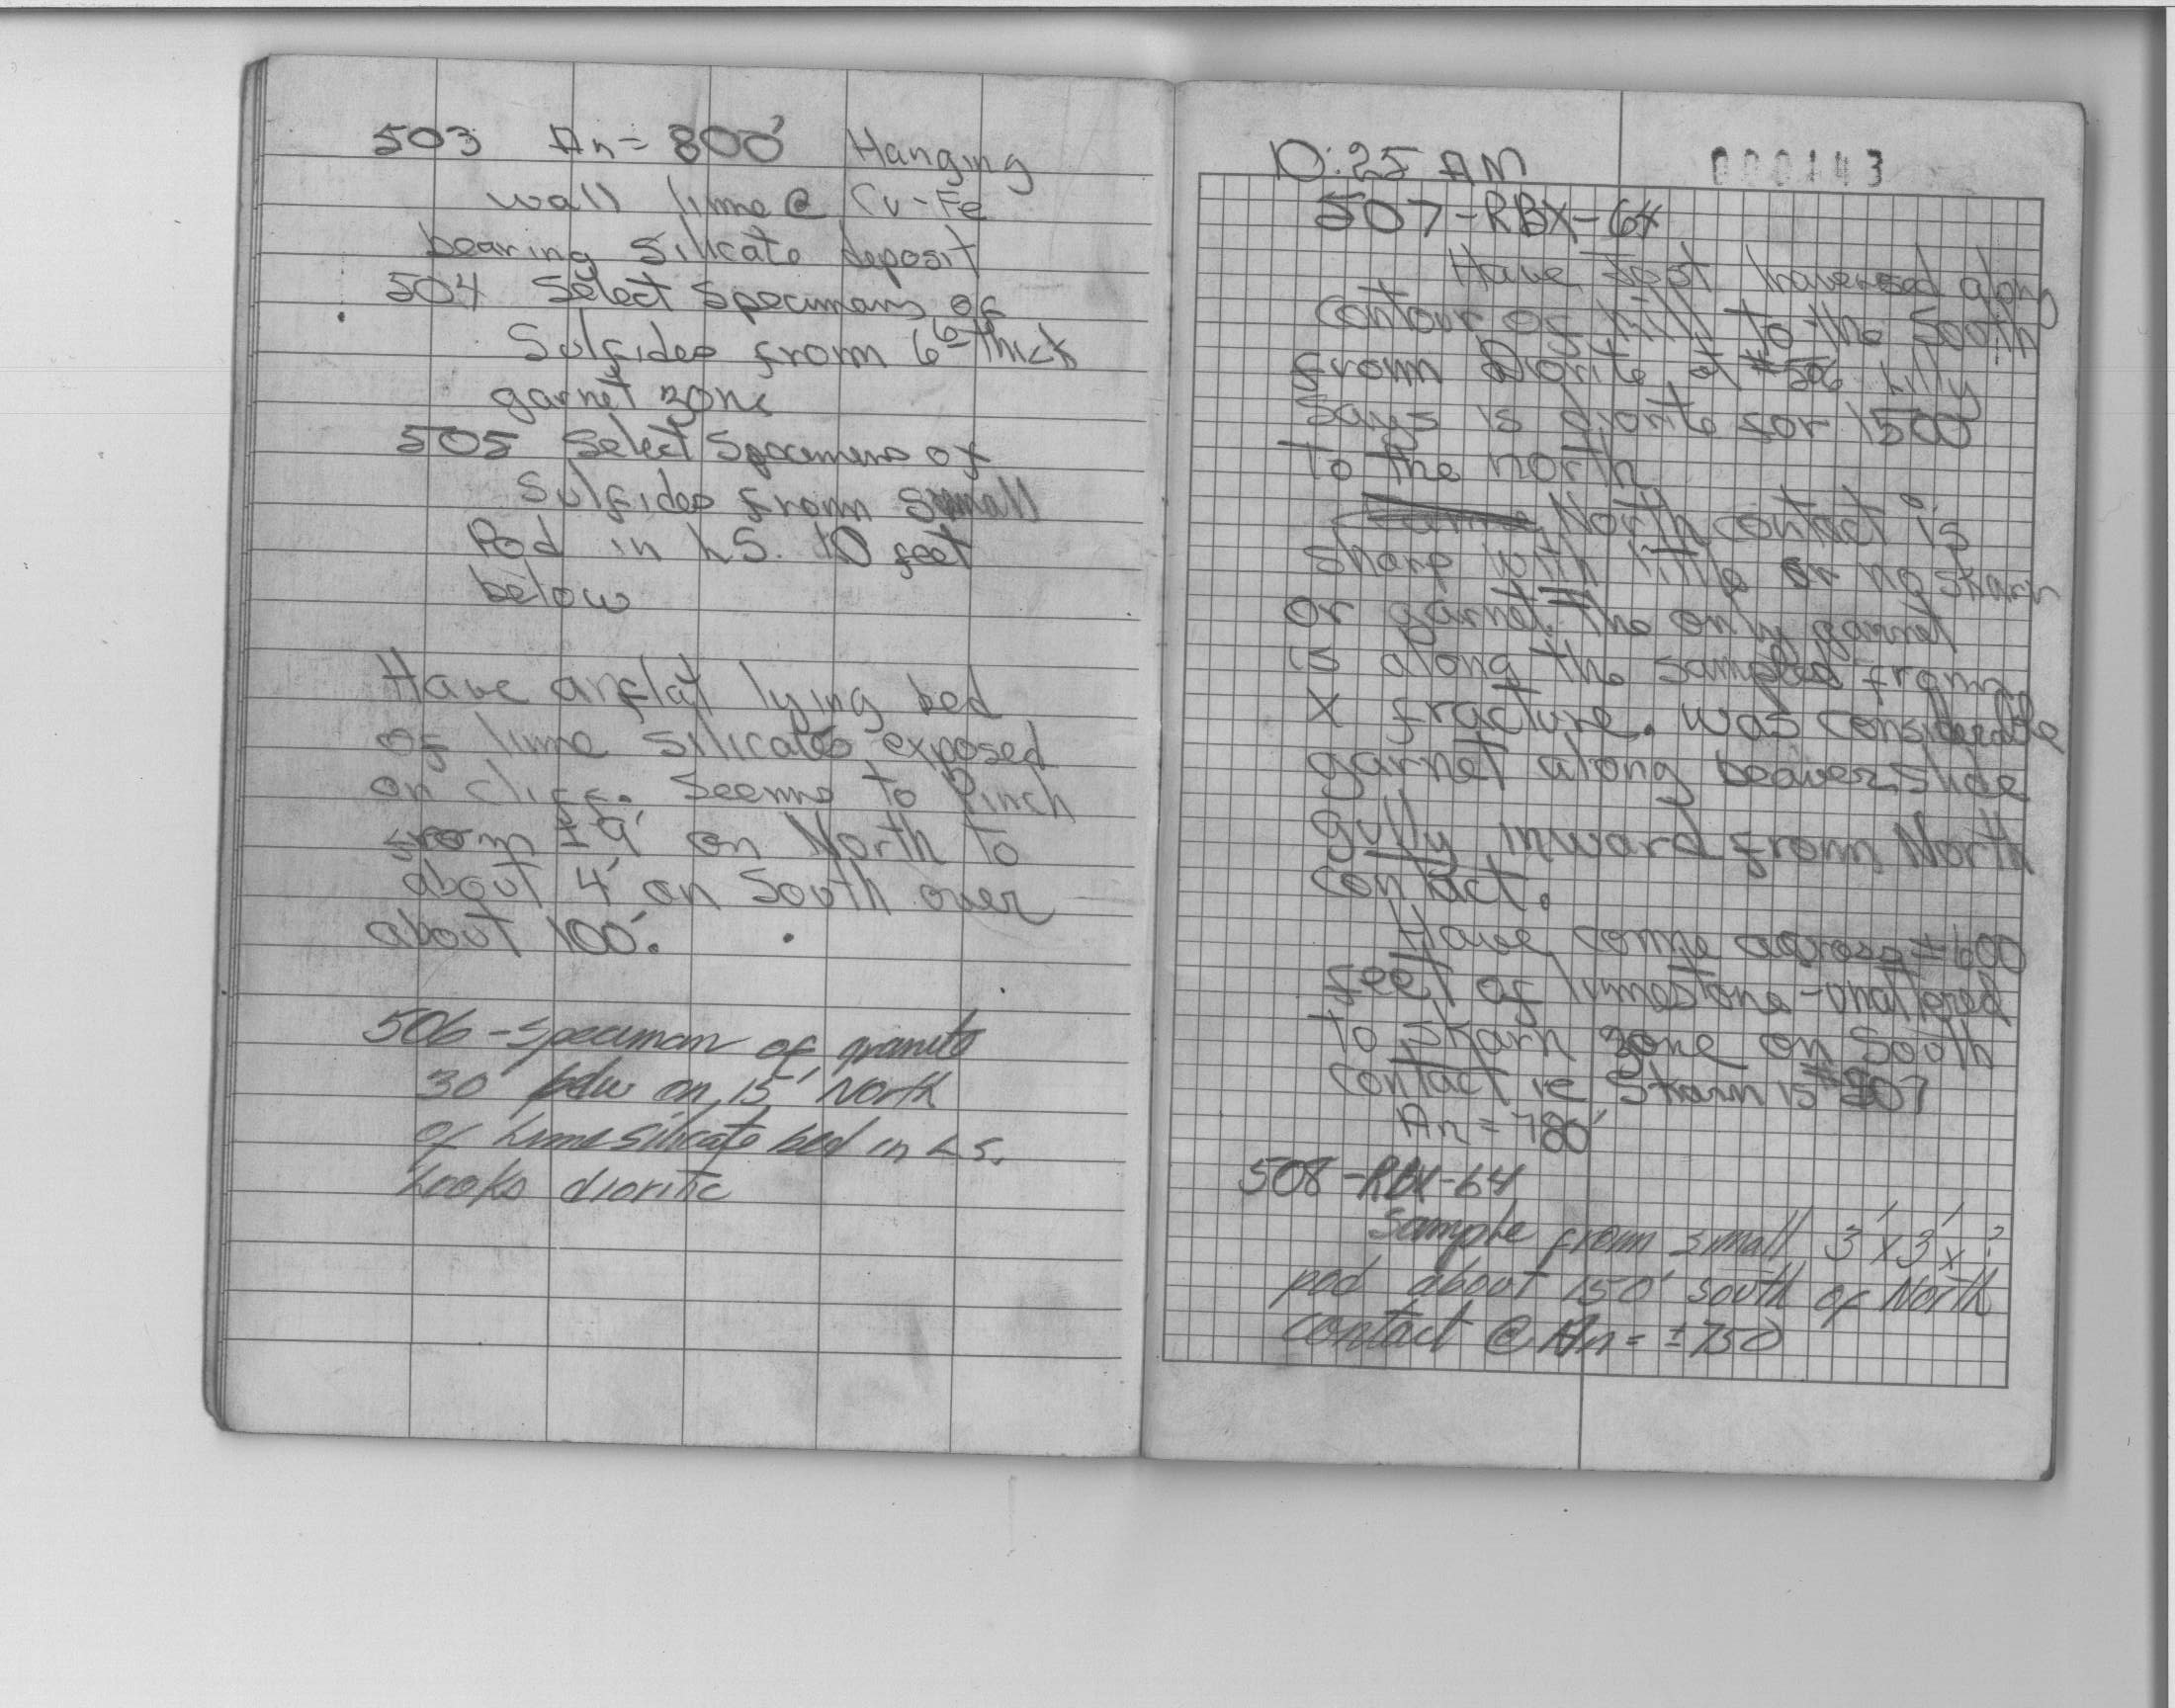 503 An = 800' Hanging
wall lime @ Cu-Fe
bearing silicate deposit
504 Select Specimens of
Sulfides from 6" thick
garnet zone
505 Select Specimens of
Sulfides from small
Pod in LS. 10 feet
below
Have a flat lying bed
of lime silicates exposed
on cliff. Seems to Pinch
from ±9' on North to
about 4' on South over
about 100'.
506 - Specimen of granite
30' below on 15' North
of Lime silicate bed in LS.
Looks dioritic
10:25 AM
000143
507-RBX-64
Have just traversed along
contour of hill to the South
from Diorite at #506
Says is diorite for 1500'
to the north
North contact is
sharp with little or no skarn
or garnet. The only garnet
is along the sampled from
X fracture. Was considerable
garnet along beaverslide
gully inward from North
contact.
Have come across ±600
feet of limestone - unaltered
to skarn zone on South
contact ie Skarn is #507
An = 780'
508-RBX-64
Sample from small 3' x 3' x ?
pod about 150' south of North
contact @ An = ±750